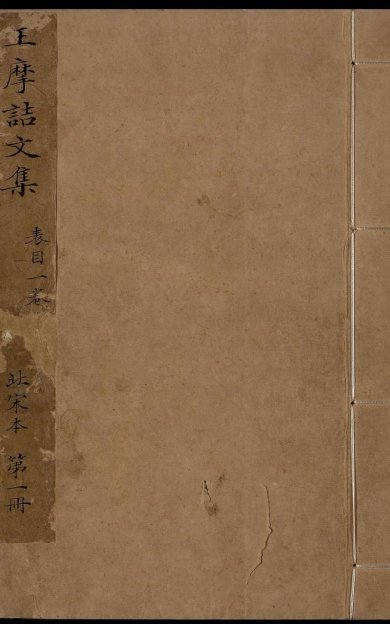 王摩詰文集
表目一卷
北宋本 第一冊